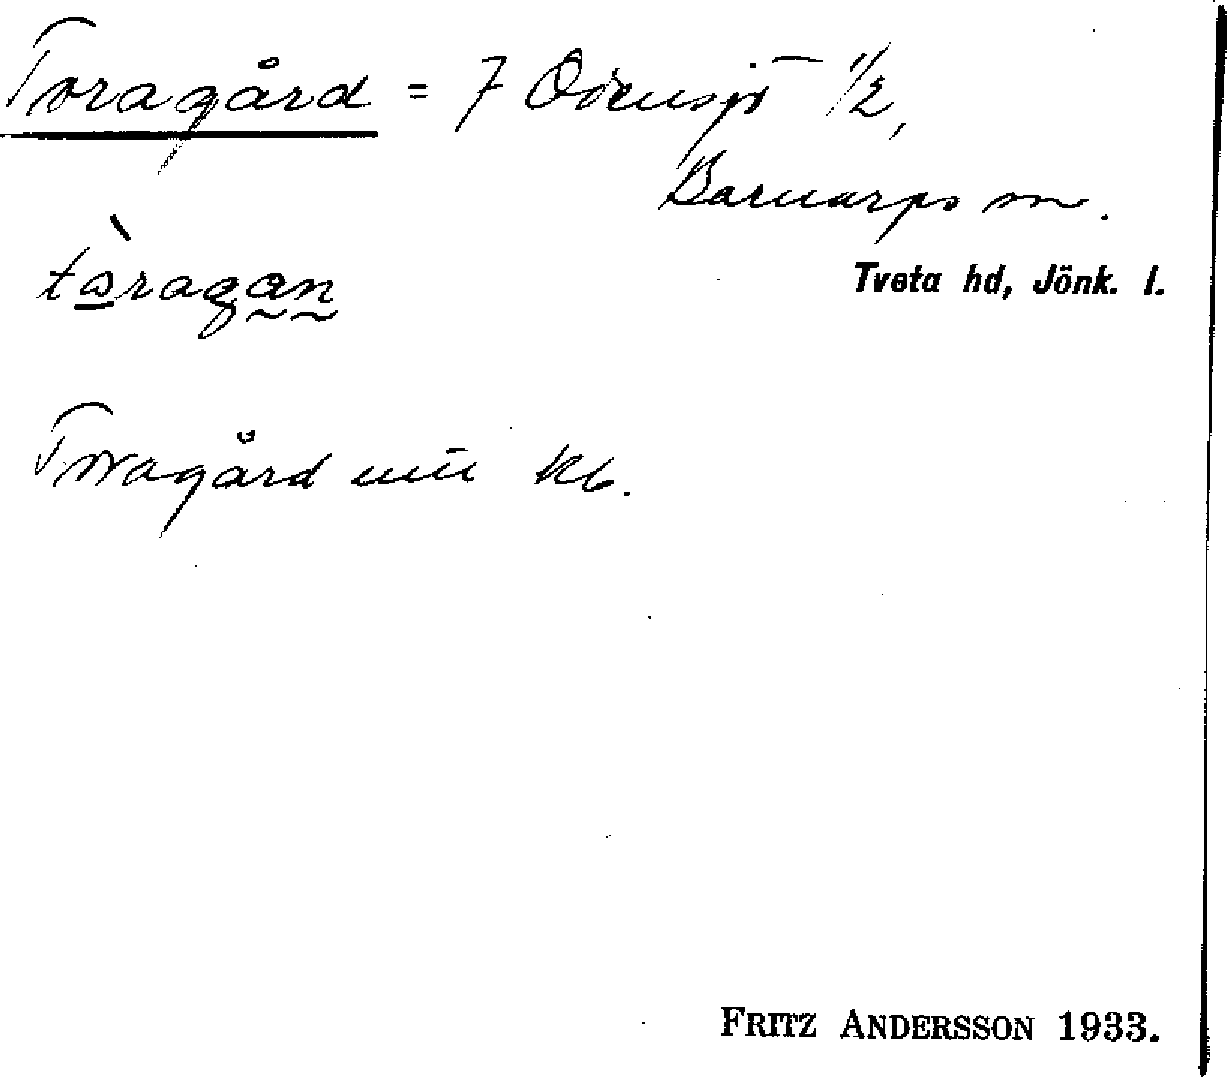 Toragård = 7 Odensjö 1/2,
Barnarps sn.
tòragan
Tveta hd, Jönk. l.
Toragård kb.
FRITZ ANDERSSON 1933.